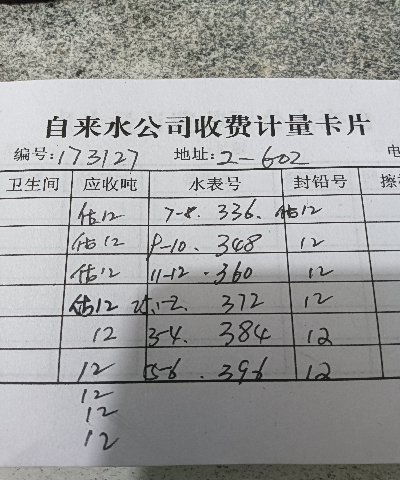 自来水公司收费计量卡片
编号:173127 地址:2-602
卫生间 应收吨 水表号 封铅号
估12 7-8. 336. 估12
估12 9-10. 348 12
估12 11-12. 360 12
估12 25.1-2. 372 12
12 3-4. 384 12
12 5-6. 396 12
12
12
12